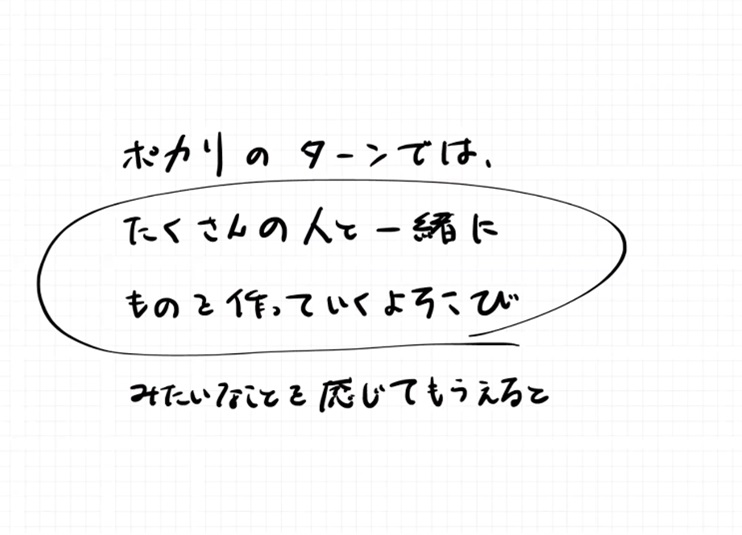 ポカリのターンでは、
たくさんの人と一緒に
ものを作っていくよろこび
みたいなことを感じてもらえると